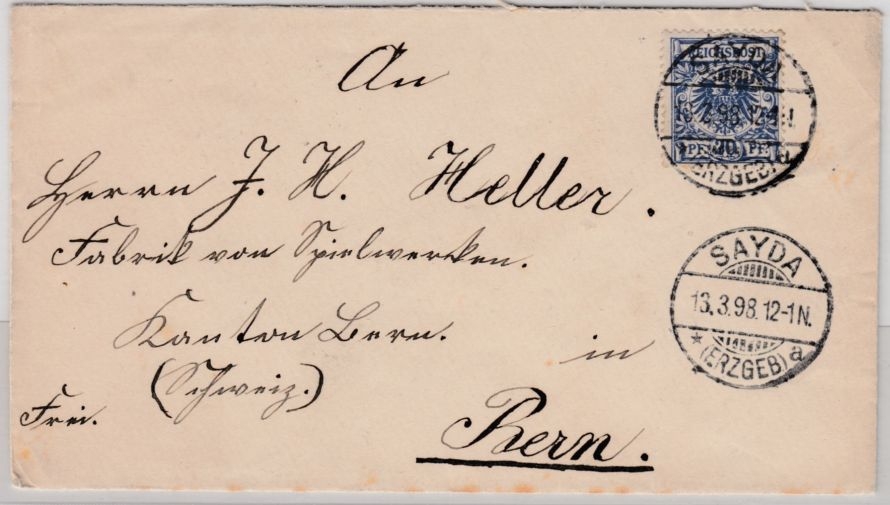 An
REICHSPOST
SAYDA
13.3.98 12-1N.
20
PF PF
(ERZGEB) a
Herrn J. H. Heller.
Fabrik von Spielwerken.
SAYDA
13.3.98.12-1N.
* (ERZGEB) a
Kanton Bern.
in
(Schweiz.)
Frei.
Bern.